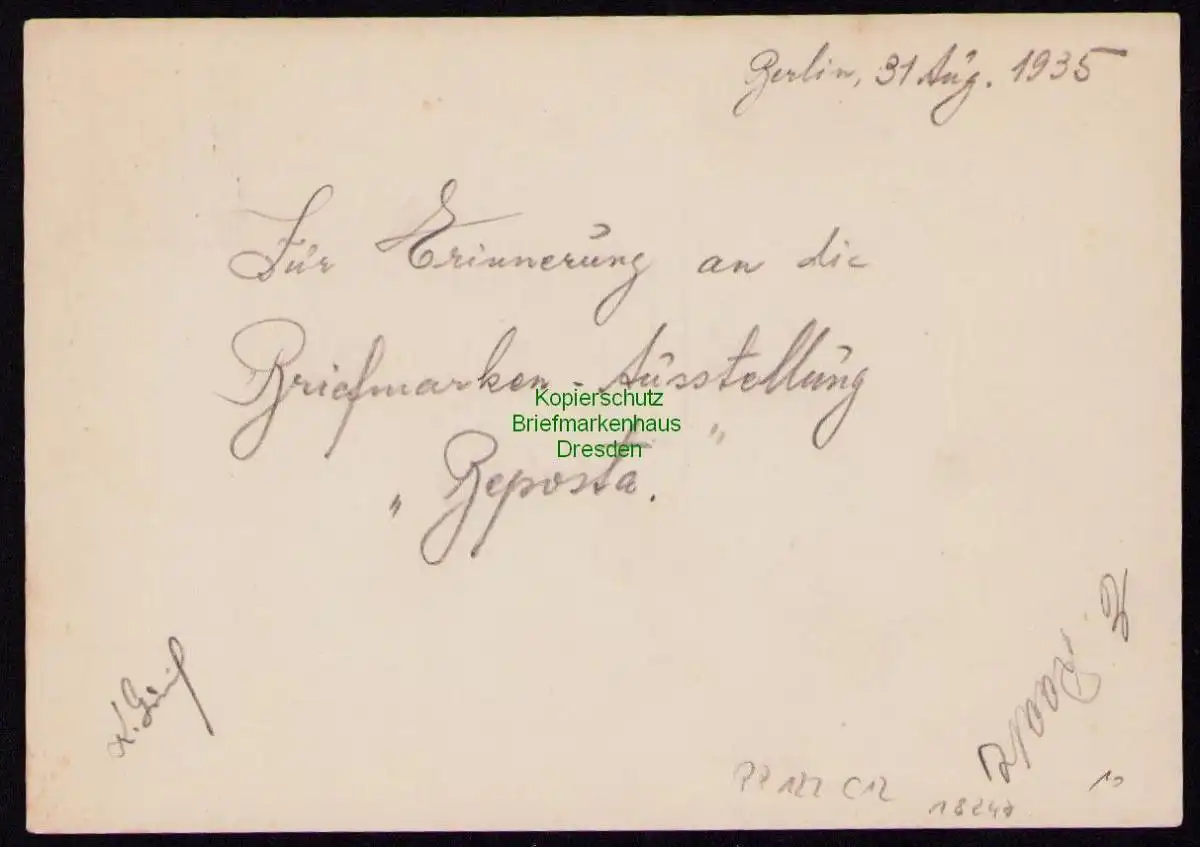 Berlin, 31 Aug. 1935
Für Erinnerung an die
Briefmarken-Ausstellung
„Beposta."
Kopierschutz
Briefmarkenhaus
Dresden
PP 122 C12
18247
10